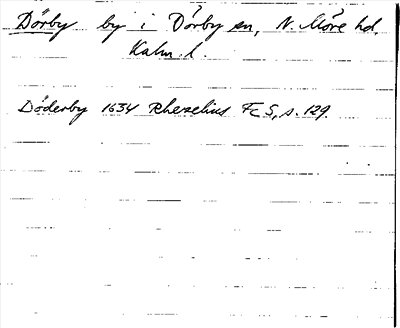 Dörby by i Dörby sn, N. Möre hd.
Kalm. l.
Döderby 1634 Rhezelius Fc 5, s. 129.